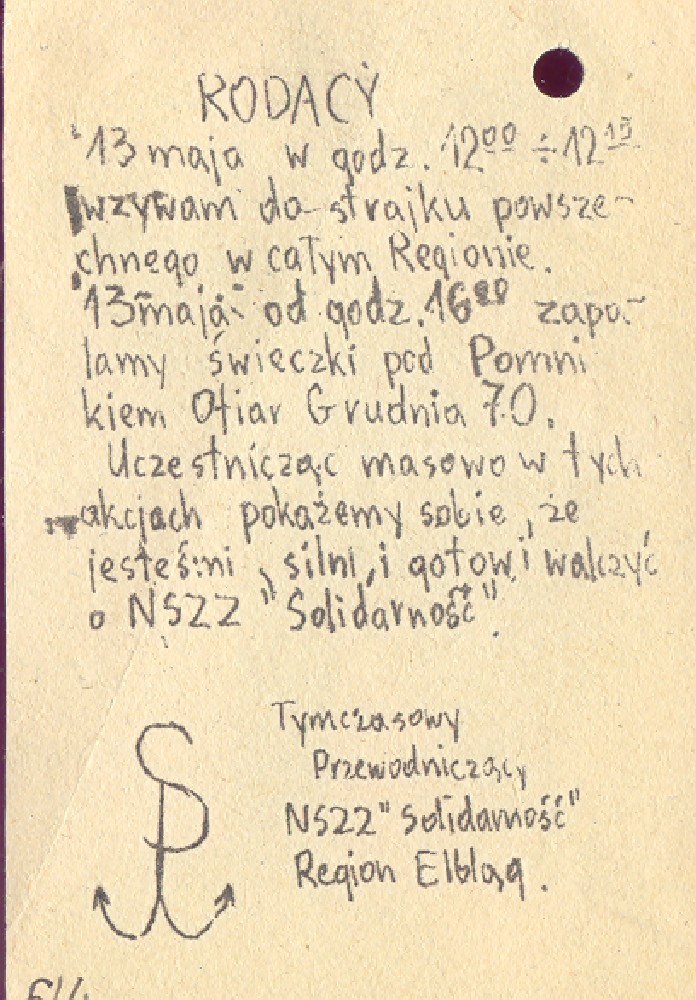 RODACY
13 maja w godz. 12⁰⁰ ÷ 12¹⁵
wzywam do strajku powsze-
chnego w całym Regionie.
13 maja od godz. 16⁰⁰ zapa-
lamy świeczki pod Pomni
kiem Ofiar Grudnia 70.
Uczestnicząc masowo w tych
akcjach pokażemy sobie, że
jesteśmi, silni, i gotowi walczyć
o NSZZ "Solidarność".
Tymczasowy
Przewodniczący
NSZZ "Solidarność"
Region Elbląg.
SP